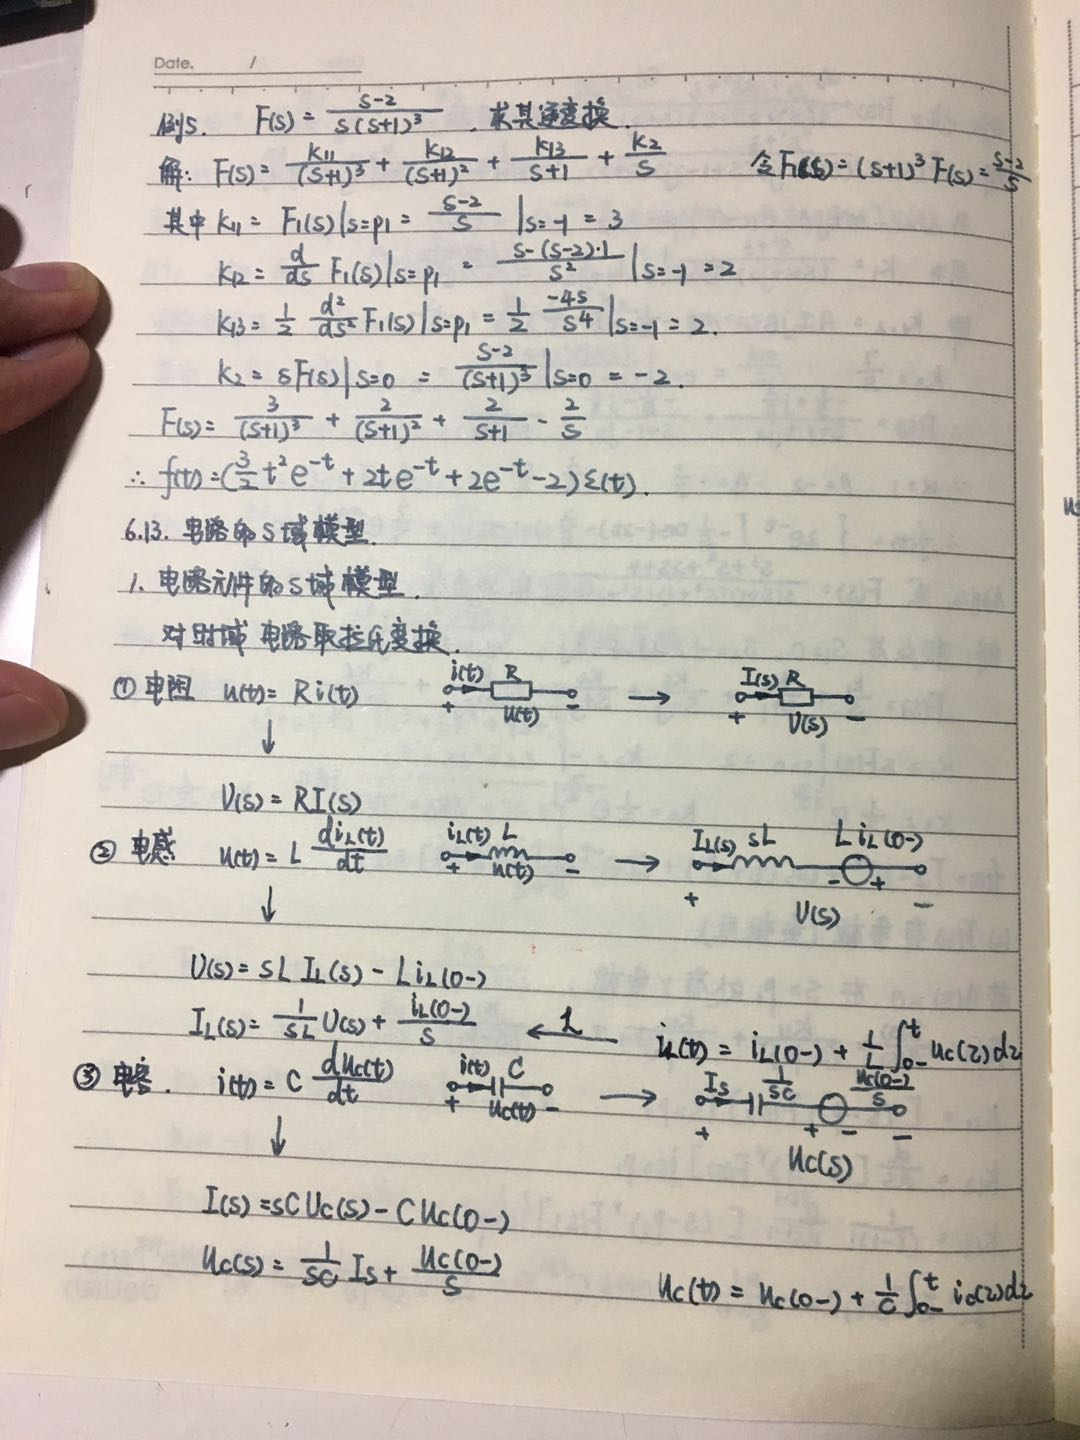 Date. /
例5. F(s) = \frac{s-2}{s(s+1)^3}. 求其逆变换.
解: F(s) = \frac{k_{11}}{(s+1)^3} + \frac{k_{12}}{(s+1)^2} + \frac{k_{13}}{s+1} + \frac{k_2}{s} 令F_1(s) = (s+1)^3 F(s) = \frac{s-2}{s}
其中 k_{11} = F_1(s)|_{s=p_1} = \frac{s-2}{s}|_{s=-1} = 3
k_{12} = \frac{d}{ds} F_1(s)|_{s=p_1} = \frac{s-(s-2)·1}{s^2}|_{s=-1} = 2
k_{13} = \frac{1}{2} \frac{d^2}{ds^2} F_1(s)|_{s=p_1} = \frac{1}{2} \frac{-4s}{s^4}|_{s=-1} = 2.
k_2 = sF(s)|_{s=0} = \frac{s-2}{(s+1)^3}|_{s=0} = -2.
F(s) = \frac{3}{(s+1)^3} + \frac{2}{(s+1)^2} + \frac{2}{s+1} - \frac{2}{s}
∴ f(t) = (\frac{3}{2}t^2e^{-t} + 2te^{-t} + 2e^{-t} - 2)ε(t).
6.13. 电路的S域模型.
1. 电路元件的S域模型.
对时域电路取拉氏变换.
① 电阻 u(t) = Ri(t) i(t) R + u(t) - → I(s) R + U(s) -
↓
U(s) = RI(s)
② 电感 u(t) = L \frac{di_L(t)}{dt} i_L(t) L + u(t) - → I_L(s) sL Li_L(0-) + - + - U(s)
↓
U(s) = sL I_L(s) - Li_L(0-)
I_L(s) = \frac{1}{sL}U(s) + \frac{i_L(0-)}{s} ← L i_L(t) = i_L(0-) + \frac{1}{L}∫_{0-}^{t} u_C(τ)dτ
③ 电容. i(t) = C \frac{du_C(t)}{dt} i(t) C + u_C(t) - → I_s \frac{1}{sC} \frac{u_C(0-)}{s} + + - - u_C(s)
↓
I(s) = sCU_C(s) - Cu_C(0-)
u_C(s) = \frac{1}{sC}I_s + \frac{u_C(0-)}{s} u_C(t) = u_C(0-) + \frac{1}{C}∫_{0-}^{t} i_C(τ)dτ